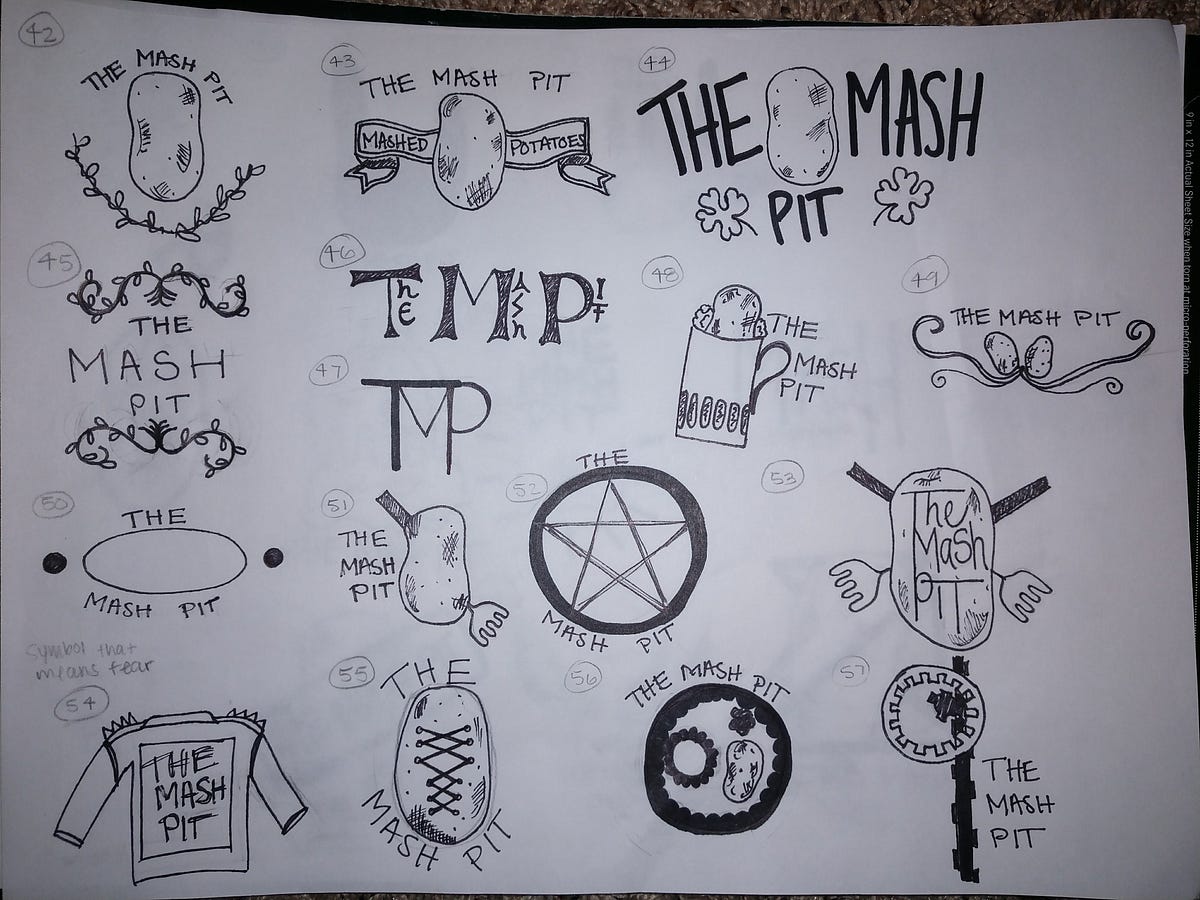 42
THE MASH PIT
43
THE MASH PIT
MASHED POTATOES
44
THE MASH
PIT
45
THE
MASH
PIT
46
The MAsh PIt
47
TMP
48
THE
MASH
PIT
49
THE MASH PIT
50
THE
MASH PIT
Symbol that
means fear
51
THE
MASH
PIT
52
THE
MASH PIT
53
The
Mash
PIT
54
THE
MASH
PIT
55
THE
MASH PIT
56
THE MASH PIT
57
THE
MASH
PIT
9 in x 12 in Actual Sheet Size when torn at micro-perforation